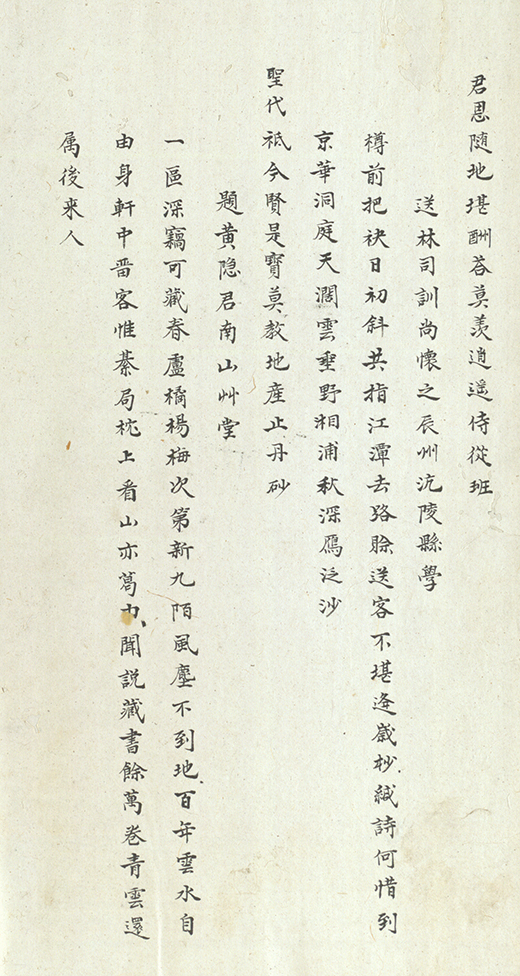 君恩隨地堪酬荅莫羡逍遥侍從班
送林司訓尚懷之辰州沅陵縣學
樽前把袂日初斜共指江潭去路賒送客不堪逢歲杪緘詩何惜到
京華洞庭天濶雲垂野湘浦秋深鴈泛沙
聖代祗今賢是寶莫教地産止丹砂
題黄隐君南山艸堂
一區深竊可藏春盧橘楊梅次第新九陌風塵不到地百年雲水自
由身軒中畱客惟棊局枕上看山亦葛巾聞説藏書餘萬卷青雲還
属後来人